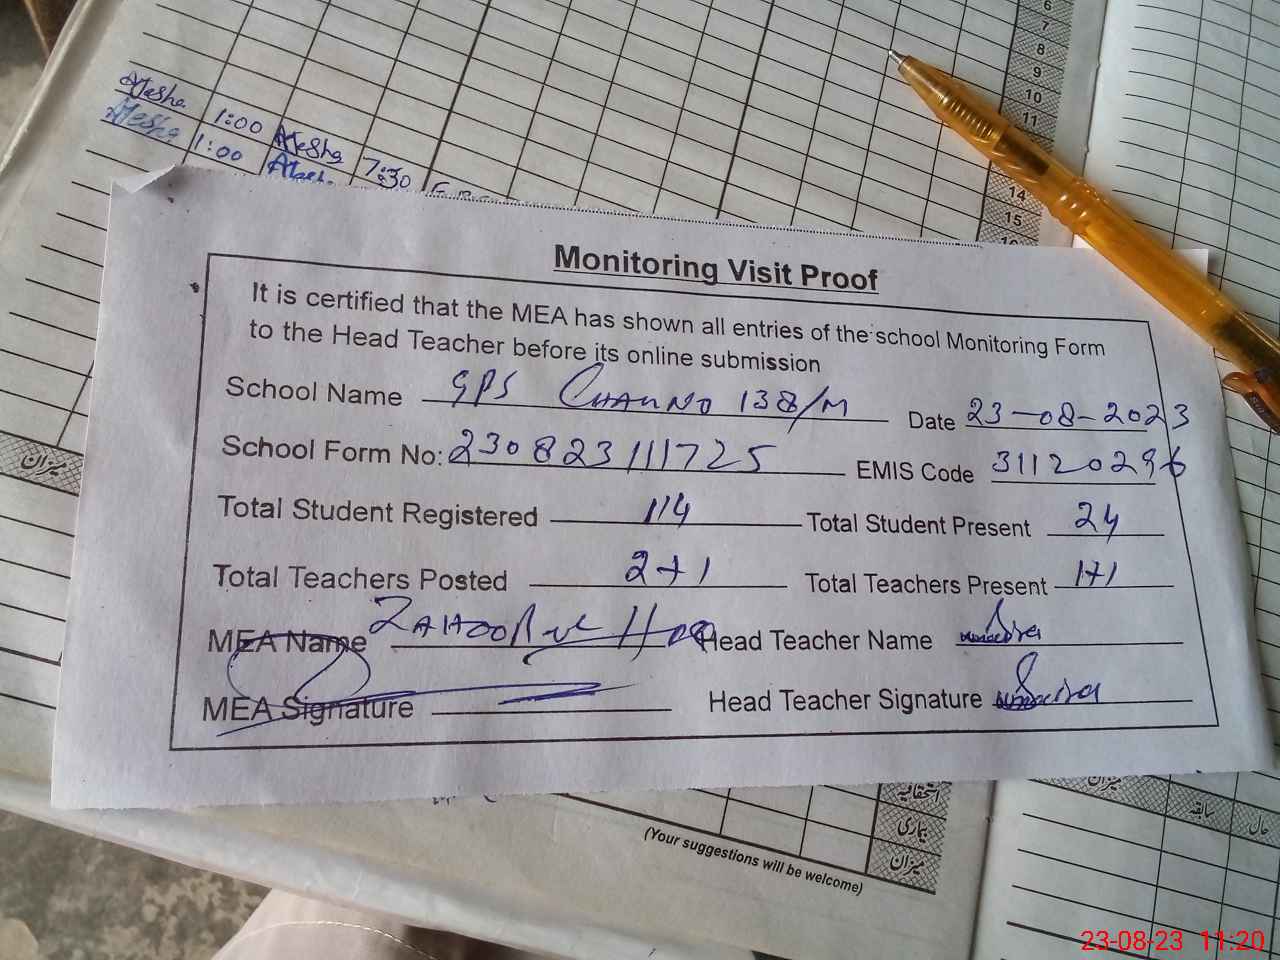 6
7
8
9
10
11
14
15
Alesha 1:00 Alesha 7:30
Alesha 1:00
Monitoring Visit Proof
It is certified that the MEA has shown all entries of the school Monitoring Form
to the Head Teacher before its online submission
School Name GPS Chak No 138/M Date 23-08-2023
School Form No: 230823111725 EMIS Code 31120296
Total Student Registered 114 Total Student Present 24
Total Teachers Posted 2+1 Total Teachers Present 1+1
MEA Name Head Teacher Name
MEA Signature Head Teacher Signature
میزان
استحقاقیہ
بیماری
میزان
میزان
سابقہ
حال
(Your suggestions will be welcome)
23-08-23 11:20